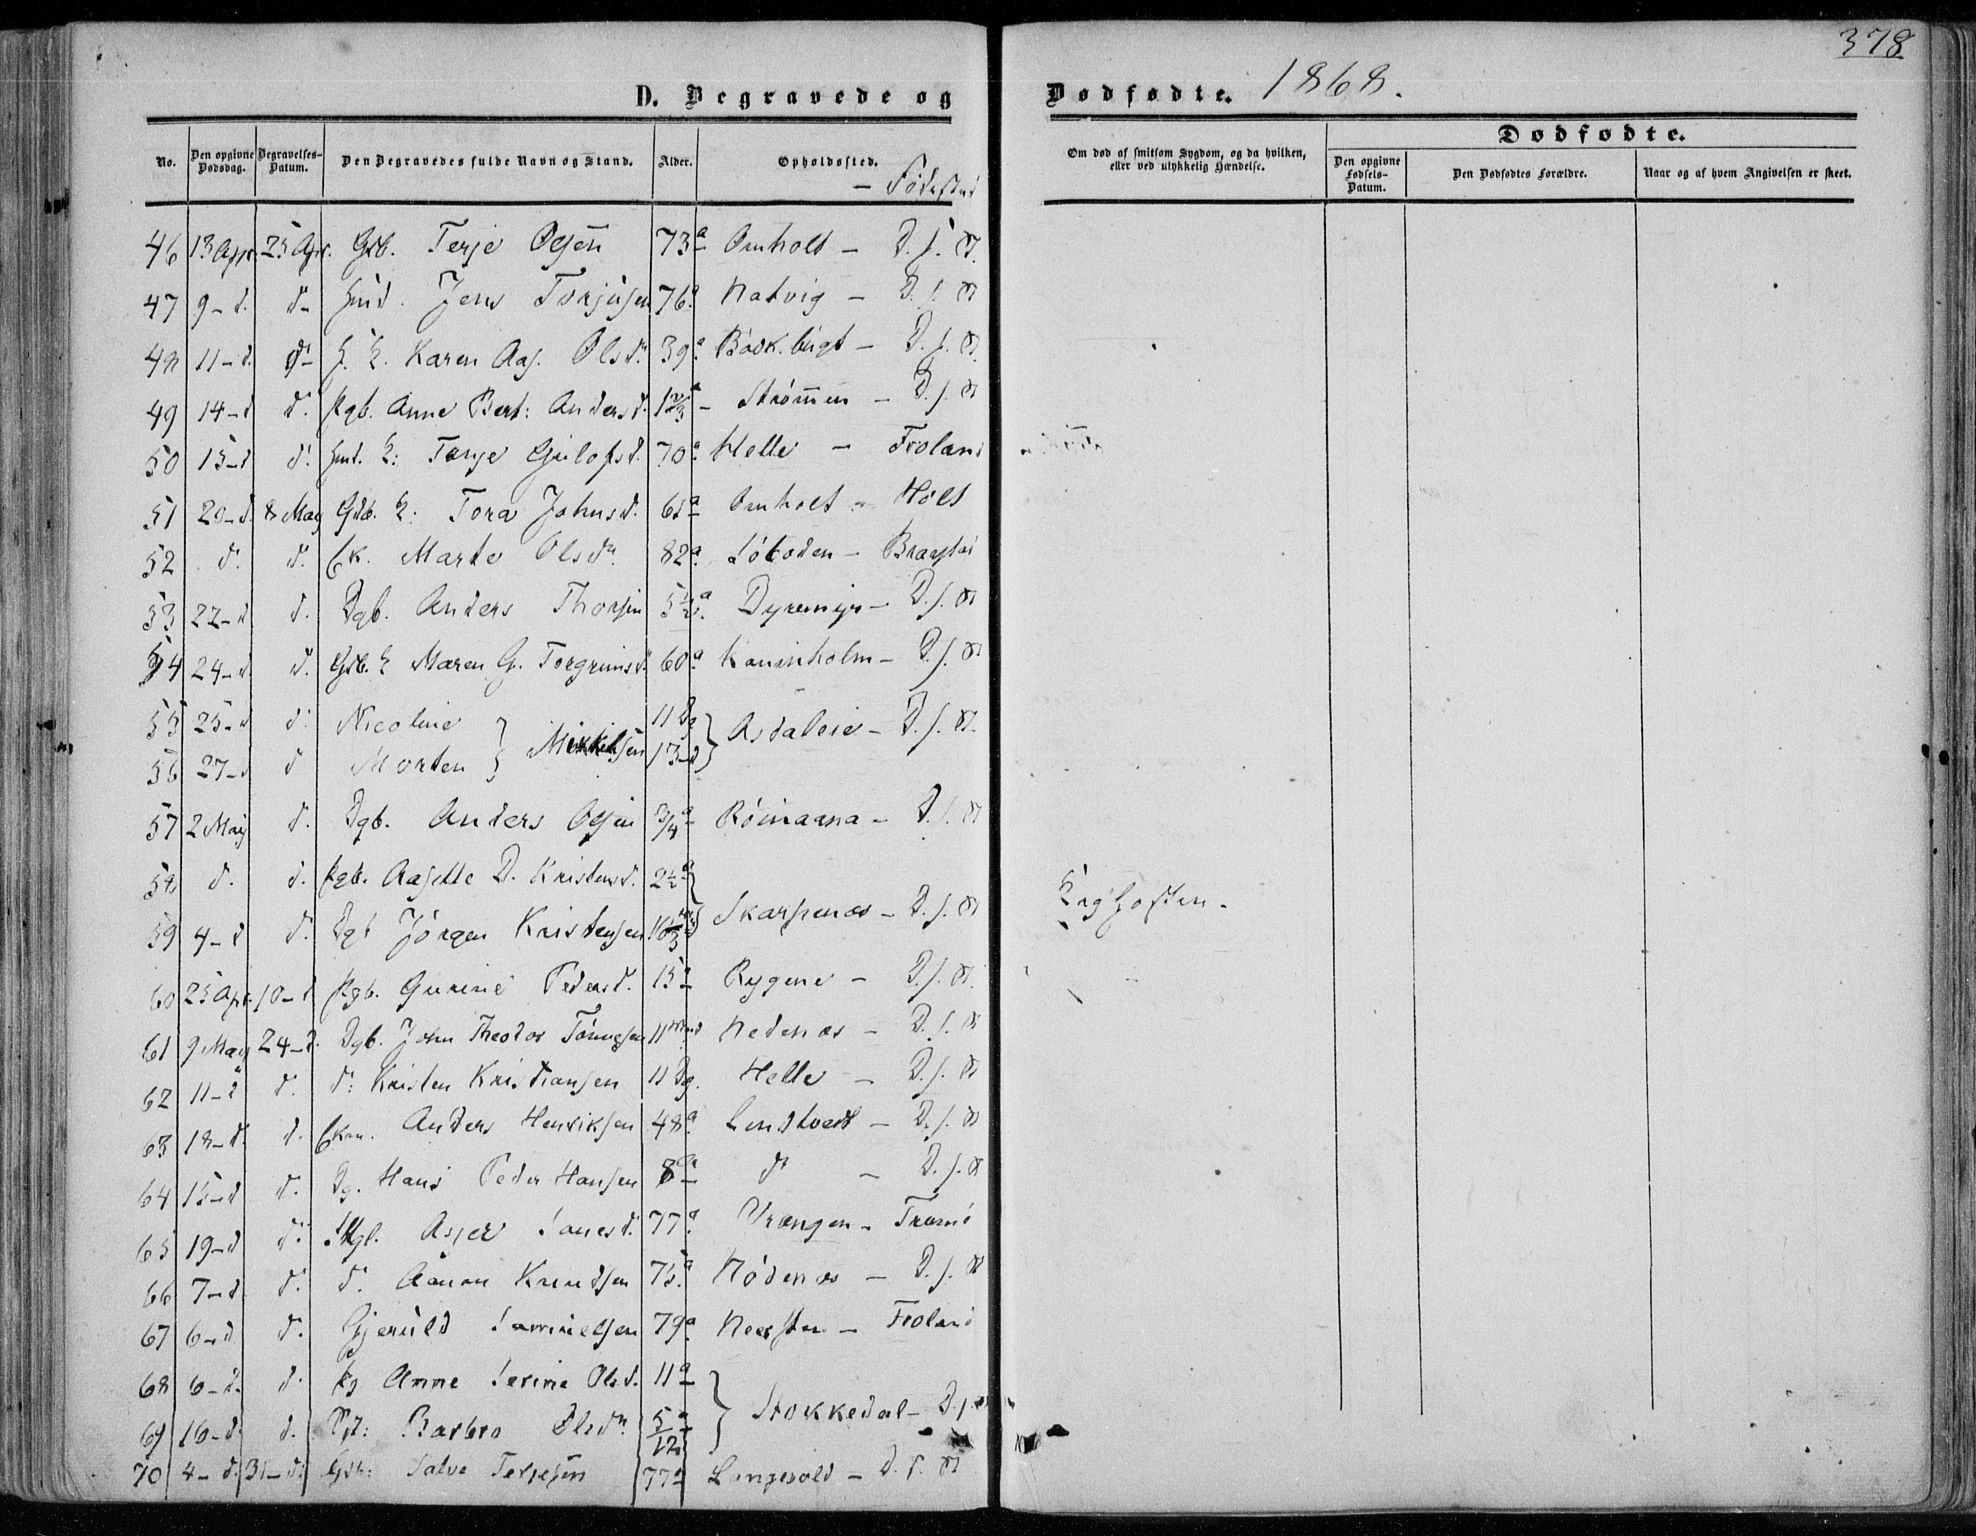 378
D. Begravede og Dødfødte. 1868.
Dødfødte.
No. Den opgivne Dødsdag. Begravelses-Datum. Den Begravedes fulde Navn og Stand. Alder. Opholdssted. Om død af smitsom Sygdom, og da hvilken, eller ved ulykkelig Hændelse. Den opgivne Fødsels-Datum. Den Dødfødtes Forældre. Naar og af hvem Angivelsen er skeet.
- Fødested
46 13 Apr. 25 Apr. Gdb. Terje Olsen 73 a Omholt - D. s. St.
47 9 - d. d. Jens Torjusen 76 a Natvig - D. s. St.
48 11 - d. d. Karen Aas. Olsdr. 39 a - D. s. St.
49 14 - d d. Pgb. Anne Bert: Andersd. 1 2/3 a - Strømmen - D. s. St.
50 15 - d d. Terje 70 a Helle - Froland
51 20 - d. 8 May Gdb. E: Tora Johnsd. 65 a Omholt - Holt
52 d. d. Fk. Marte Olsdr. 82 a - Braastad
53 22 - d d. Dgb. Anders Thorsen 5 1/2 a. Dyremyr - D. s. St.
54 24 - d. d. Gdb. E Maren G. Torgrimsd. 60 a Kaninholm - D. s. St.
55 25 - d d. Nicoline } Mikkelsen 11 Dg } Asdaleie - D. s. St.
56 27 - d d Morten 13 - d
57 2 May d. Dgb. Anders Olsen 3/4 a Rømaana - D. s. St.
58 d. d. Pgb. Aasille D. Kristensd. 2 1/2 a }
59 4 - d d. Dgb Jörgen Kristensen Skarpenæs - D. s. St. Kighosten.
60 25 Apr. 10 - d Pgb. Gurine Pedersd. 15 a Rygene - D. s. St.
61 9 May 24 - d. Dgb. John Theodor Tønnesen 11 Mnd Nedenæs - D. s. St
62 11 - d d. d: Kristen Kristiansen 11 Dg. Helle - D. s. St
63 18 - d. d. Anders Henriksen 48 a Lindtvedt - D. s. St
64 15 - d d. Dg. Hans Peder Hansen 8 a d - D. s. St
65 19 - d d. Asjer 77 a Vrængen - Tromø
66 7 - d d. d. Aanon Knudsen 75 a Nødenæs - D. s. St
67 6 - d d. Gjeruld Samuelsen 79 a Neersten - Froland
68 6 - d. d. Pg Anne Serine Olsd. 11 a }
69 16 - d. d. Barbro Olsdr 5/12 a Stokkedal - D. s. St
70 4 - d. 31 - d. Gdb: Salve Terjesen 77 a - D. s. St